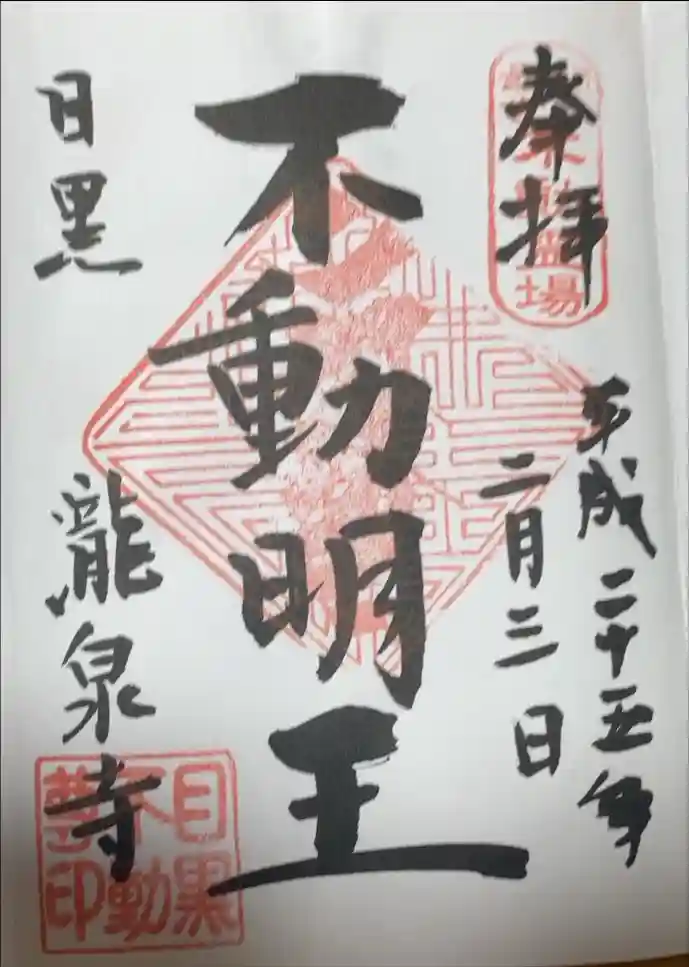 奉拝
平成二十五年
二月三日
不動明王
目黒
瀧泉寺
目黒
不動
尊印